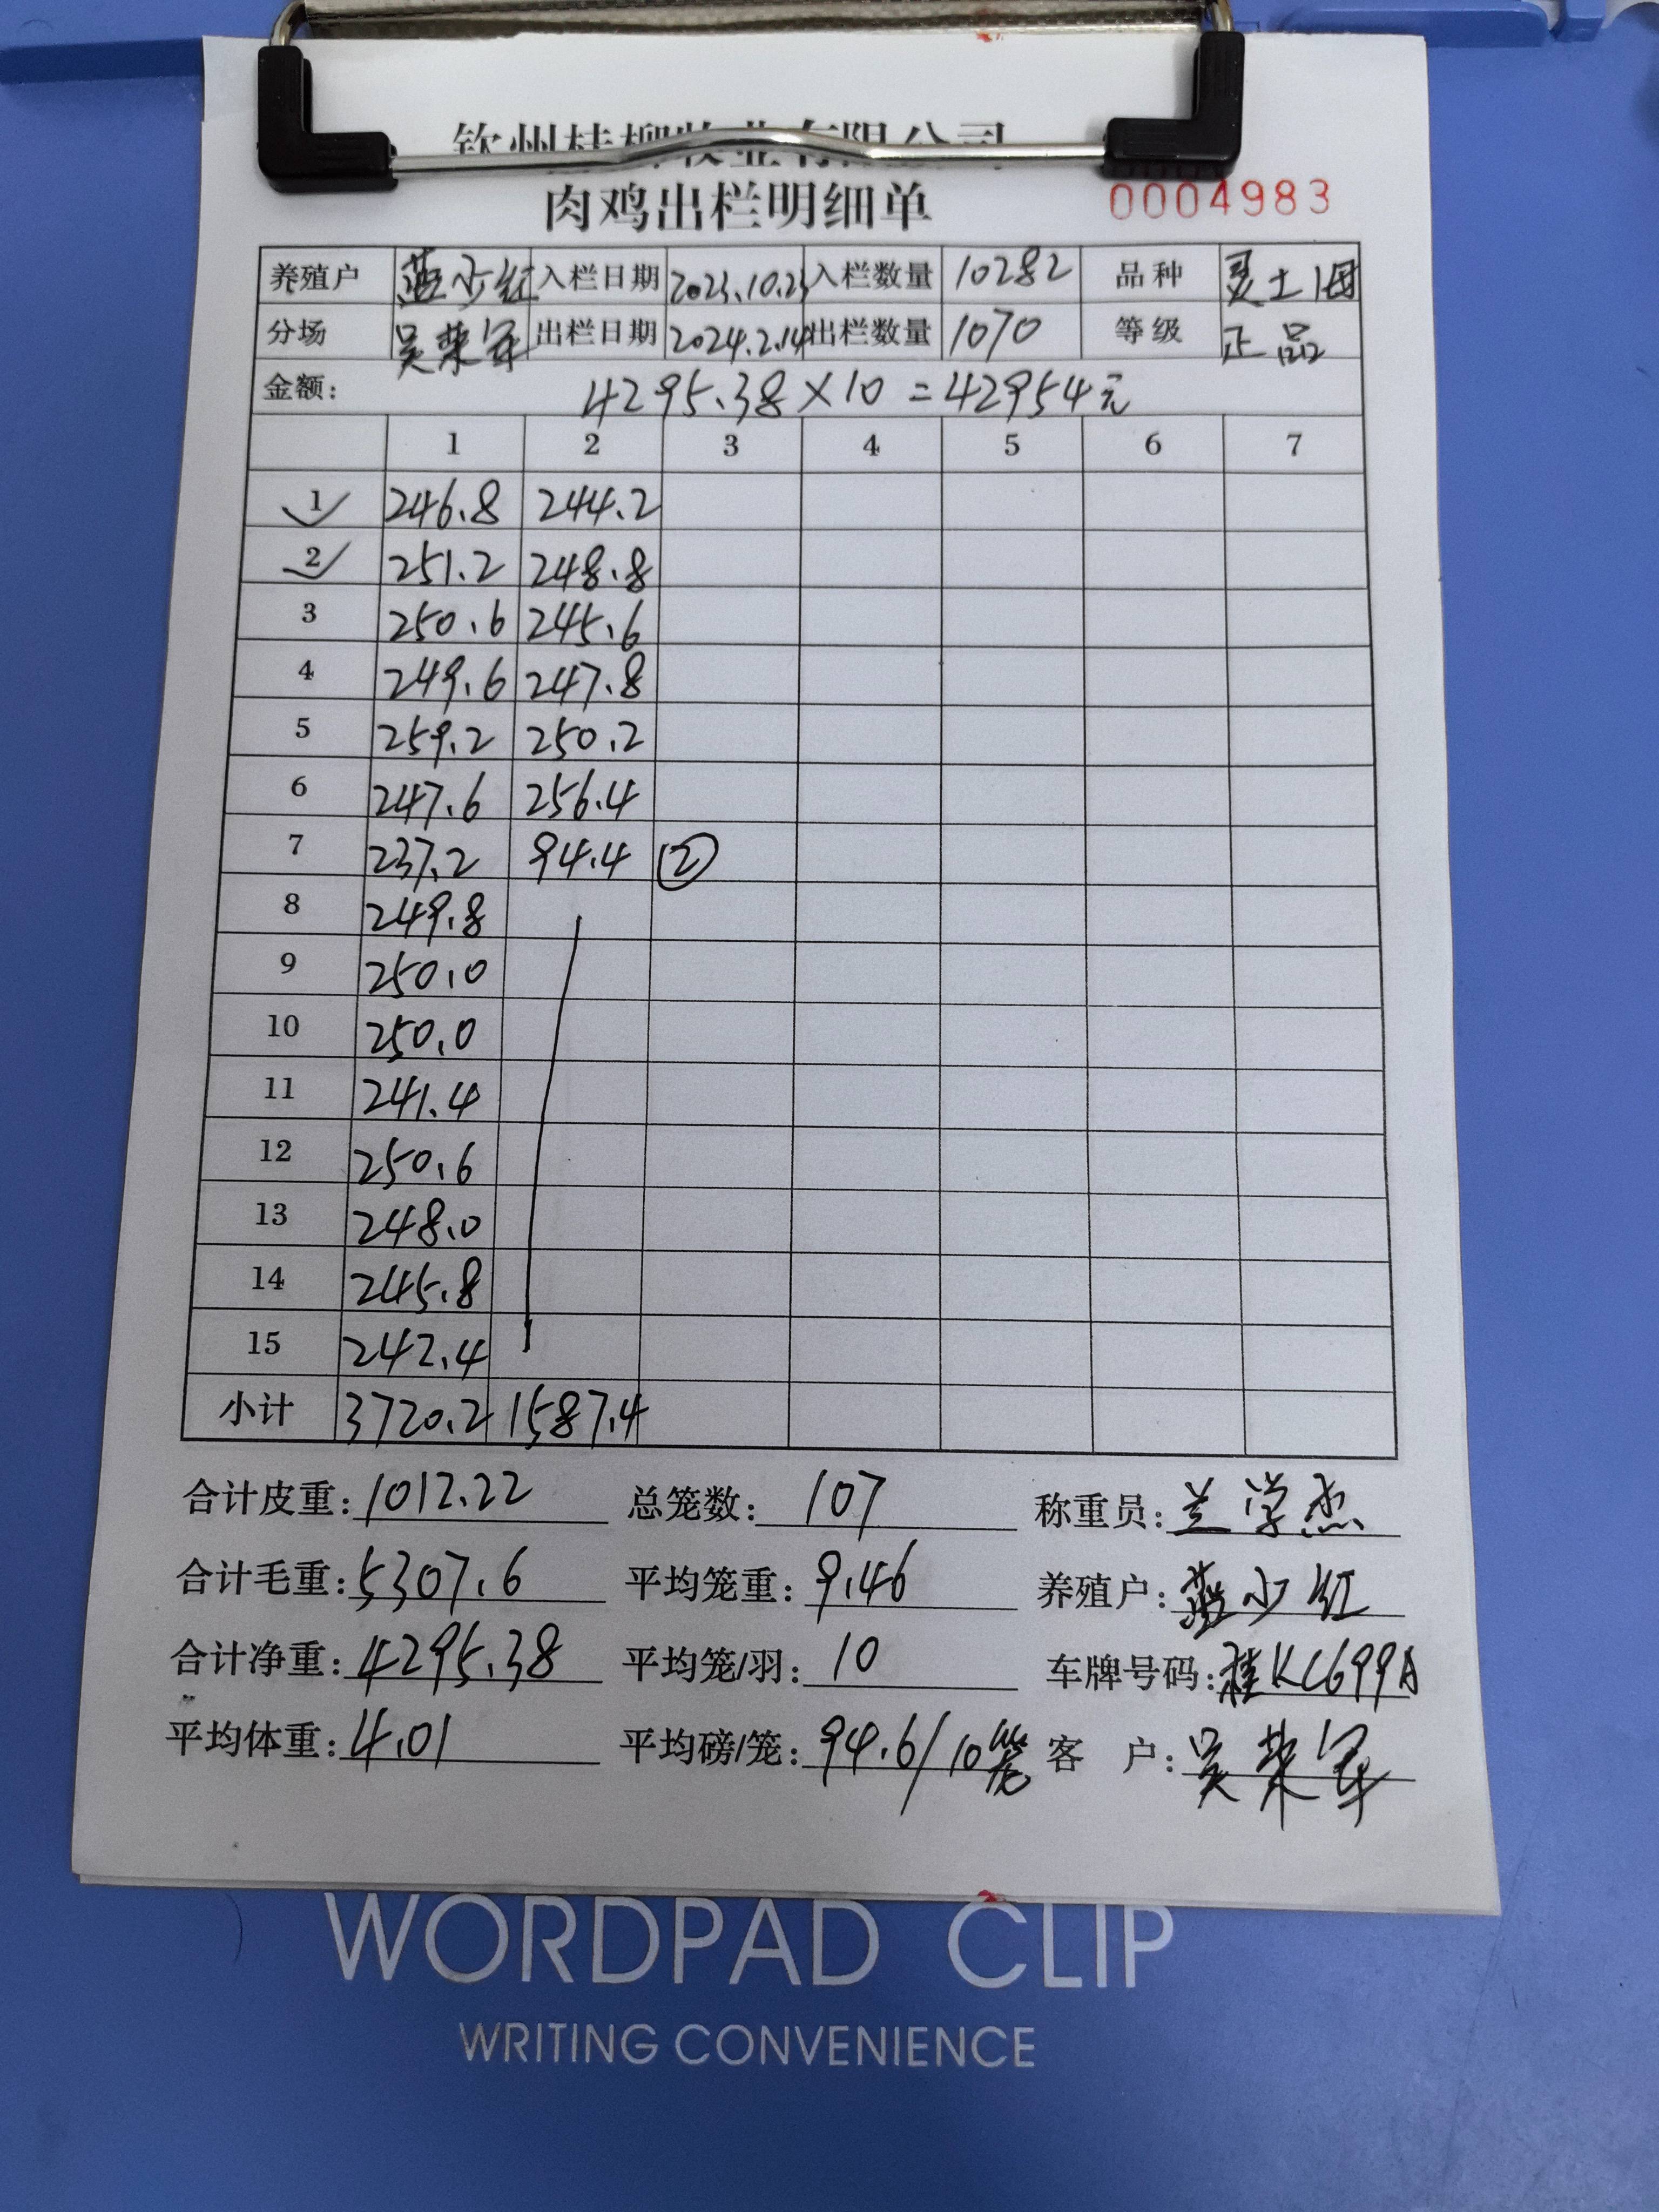 钦州桂柳牧业有限公司
肉鸡出栏明细单 0004983
养殖户 蓝少红 入栏日期 2023.10.23 入栏数量 10282 品种 灵土阉
分场 吴荣军 出栏日期 2024.2.14 出栏数量 1070 等级 正品
金额: 4295.38×10=42954元
1 2 3 4 5 6 7
1 246.8 244.2
2 251.2 248.8
3 250.6 245.6
4 249.6 247.8
5 259.2 250.2
6 247.6 256.4
7 237.2 94.4 ②
8 249.8
9 250.0
10 250.0
11 241.4
12 250.6
13 248.0
14 245.8
15 242.4
小计 3720.2 1587.4
合计皮重: 1012.22 总笼数: 107 称重员: 兰学杰
合计毛重: 5307.6 平均笼重: 9.46 养殖户: 蓝少红
合计净重: 4295.38 平均笼/羽: 10 车牌号码: 桂KC699A
平均体重: 4.01 平均磅/笼: 94.6/10笼 客 户: 吴荣军
WORDPAD CLIP
WRITING CONVENIENCE